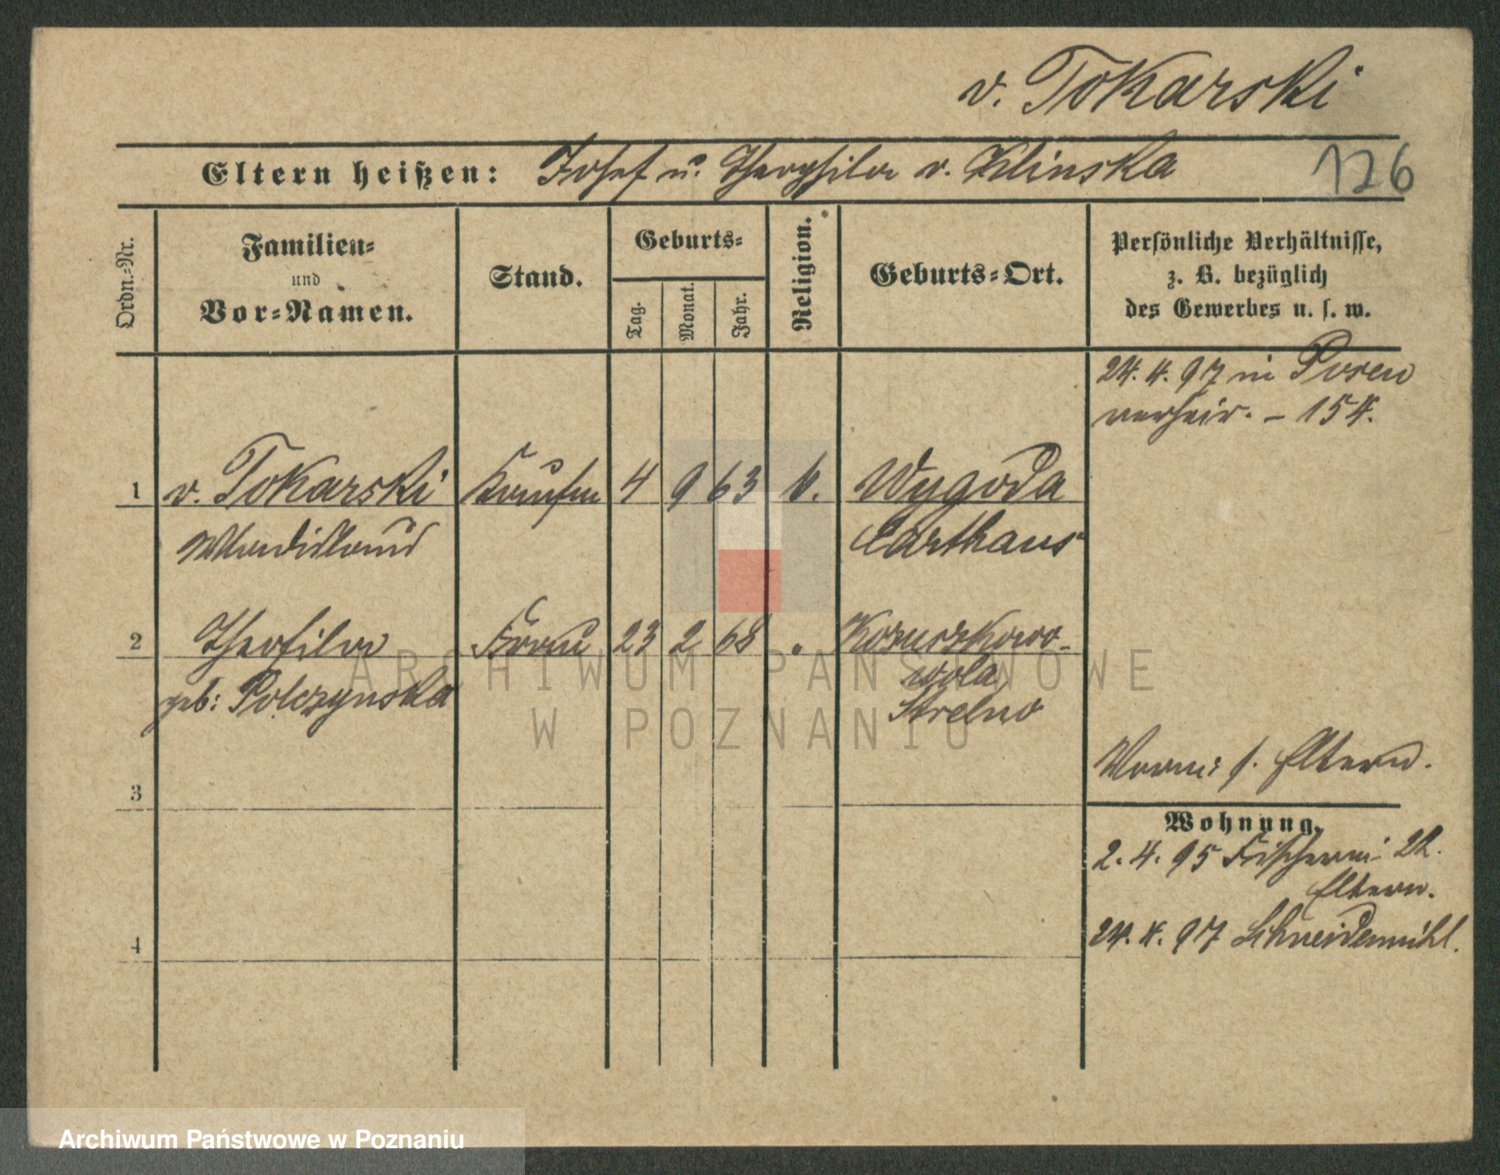 v. Tokarski
Eltern heißen: Josef u. Theophila v. Klinska
126
Ordn.-Nr.
Familien-
und
Vor-Namen.
Stand.
Geburts-
Tag.
Monat.
Jahr.
Religion.
Geburts-Ort.
Persönliche Verhältnisse,
z. B. bezüglich
des Gewerbes u. s. w.
24. 4. 97 in Posen
verheir. - 154.
1 v. Tokarski Kaufm 4 9 63 k. Wygoda
Wladislaus Carthaus
2 Theofila Frau 23 2 68 "
geb: Polczynska wola
Strelno
3
Vorm: s. Eltern.
Wohnung.
2. 4. 95 Fischerei 22.
Eltern.
4
24. 4. 97 Schneidemühl.
ARCHIWUM PAŃSTWOWE
W POZNANIU
Archiwum Państwowe w Poznaniu